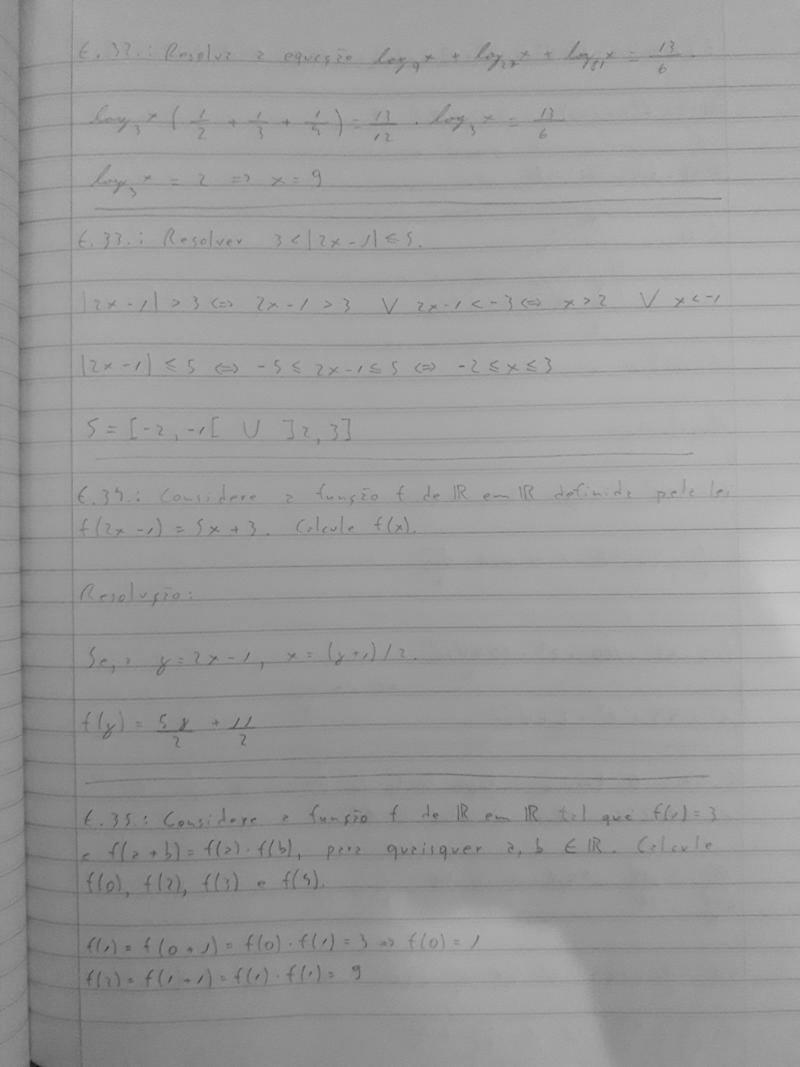 E.32.: Resolva a equação log₉x + log₂₇x + log₈₁x = 13/6.
log₃x (1/2 + 1/3 + 1/4) = 13/12 · log₃x = 13/6
log₃x = 2 => x = 9
E.33.: Resolver 3 < |2x - 1| ≤ 5.
|2x - 1| > 3 <=> 2x - 1 > 3 ∨ 2x - 1 < -3 <=> x > 2 ∨ x < -1
|2x - 1| ≤ 5 <=> -5 ≤ 2x - 1 ≤ 5 <=> -2 ≤ x ≤ 3
S = [-2, -1[ ∪ ]2, 3]
E.34.: Considere a função f de ℝ em ℝ definida pela lei
f(2x - 1) = 5x + 3. Calcule f(x).
Resolução:
Seja y = 2x - 1, x = (y + 1)/2.
f(y) = 5y/2 + 11/2
E.35.: Considere a função f de ℝ em ℝ tal que f(1) = 3
e f(a + b) = f(a) · f(b), para quaisquer a, b ∈ ℝ. Calcule
f(0), f(2), f(3) e f(5).
f(1) = f(0 + 1) = f(0) · f(1) = 3 => f(0) = 1
f(2) = f(1 + 1) = f(1) · f(1) = 9